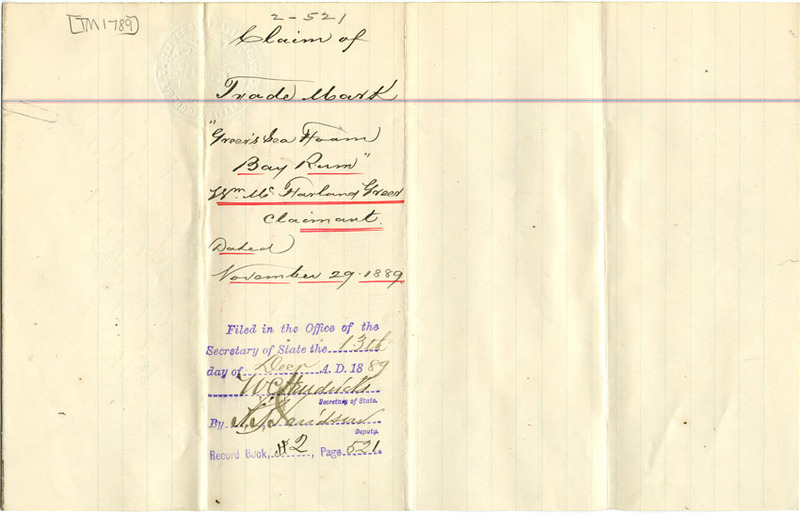 [TM1789]
2-521
Claim of
Trade Mark
"Greer's Sea Foam
Bay Rum"
Wm. Mc Farland Greer
Claimant.
Dated
November 29. 1889
Filed in the Office of the
Secretary of State the 13th
day of Decr A. D. 1889
W C Hendricks
Secretary of State.
By
Deputy.
Record Book, #2, Page 521